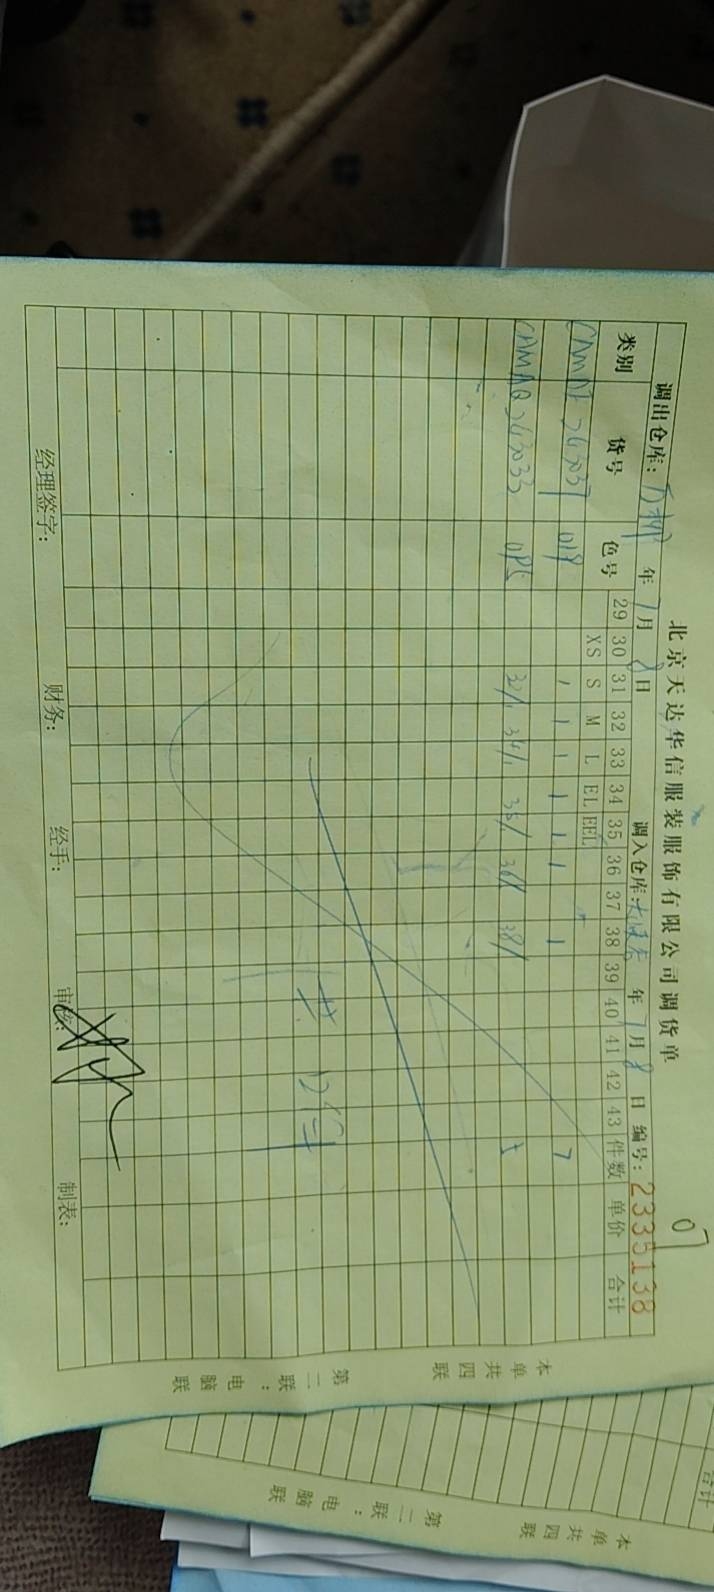 北京天达华信服装服饰有限公司调货单
07
调出仓库: 年 7月 8日 调入仓库: 年 7月 8日 编号: 2335138
类别 货号 色号 29 30 31 32 33 34 35 36 37 38 39 40 41 42 43 件数 单价 合计
XS S M L EL EEL
019 1 1 1 1 1 1 1 7
CAMAQ243033 32/1 34/1 35/1 36/1 38/1 5
共 12件
经理签字: 财务: 经手: 审核: 制表:
本单共四联
第二联:电脑联
合计
本单共四联
第二联:电脑联